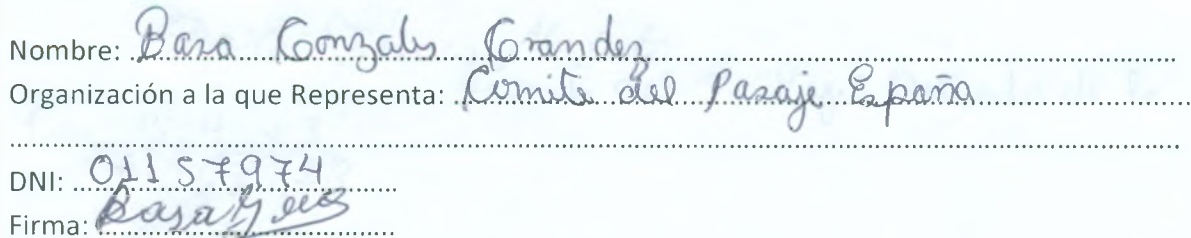 Nombre: Basa Gonzales Grandez
Organización a la que Representa: Comite del Pasaje España
DNI: 01157974
Firma: